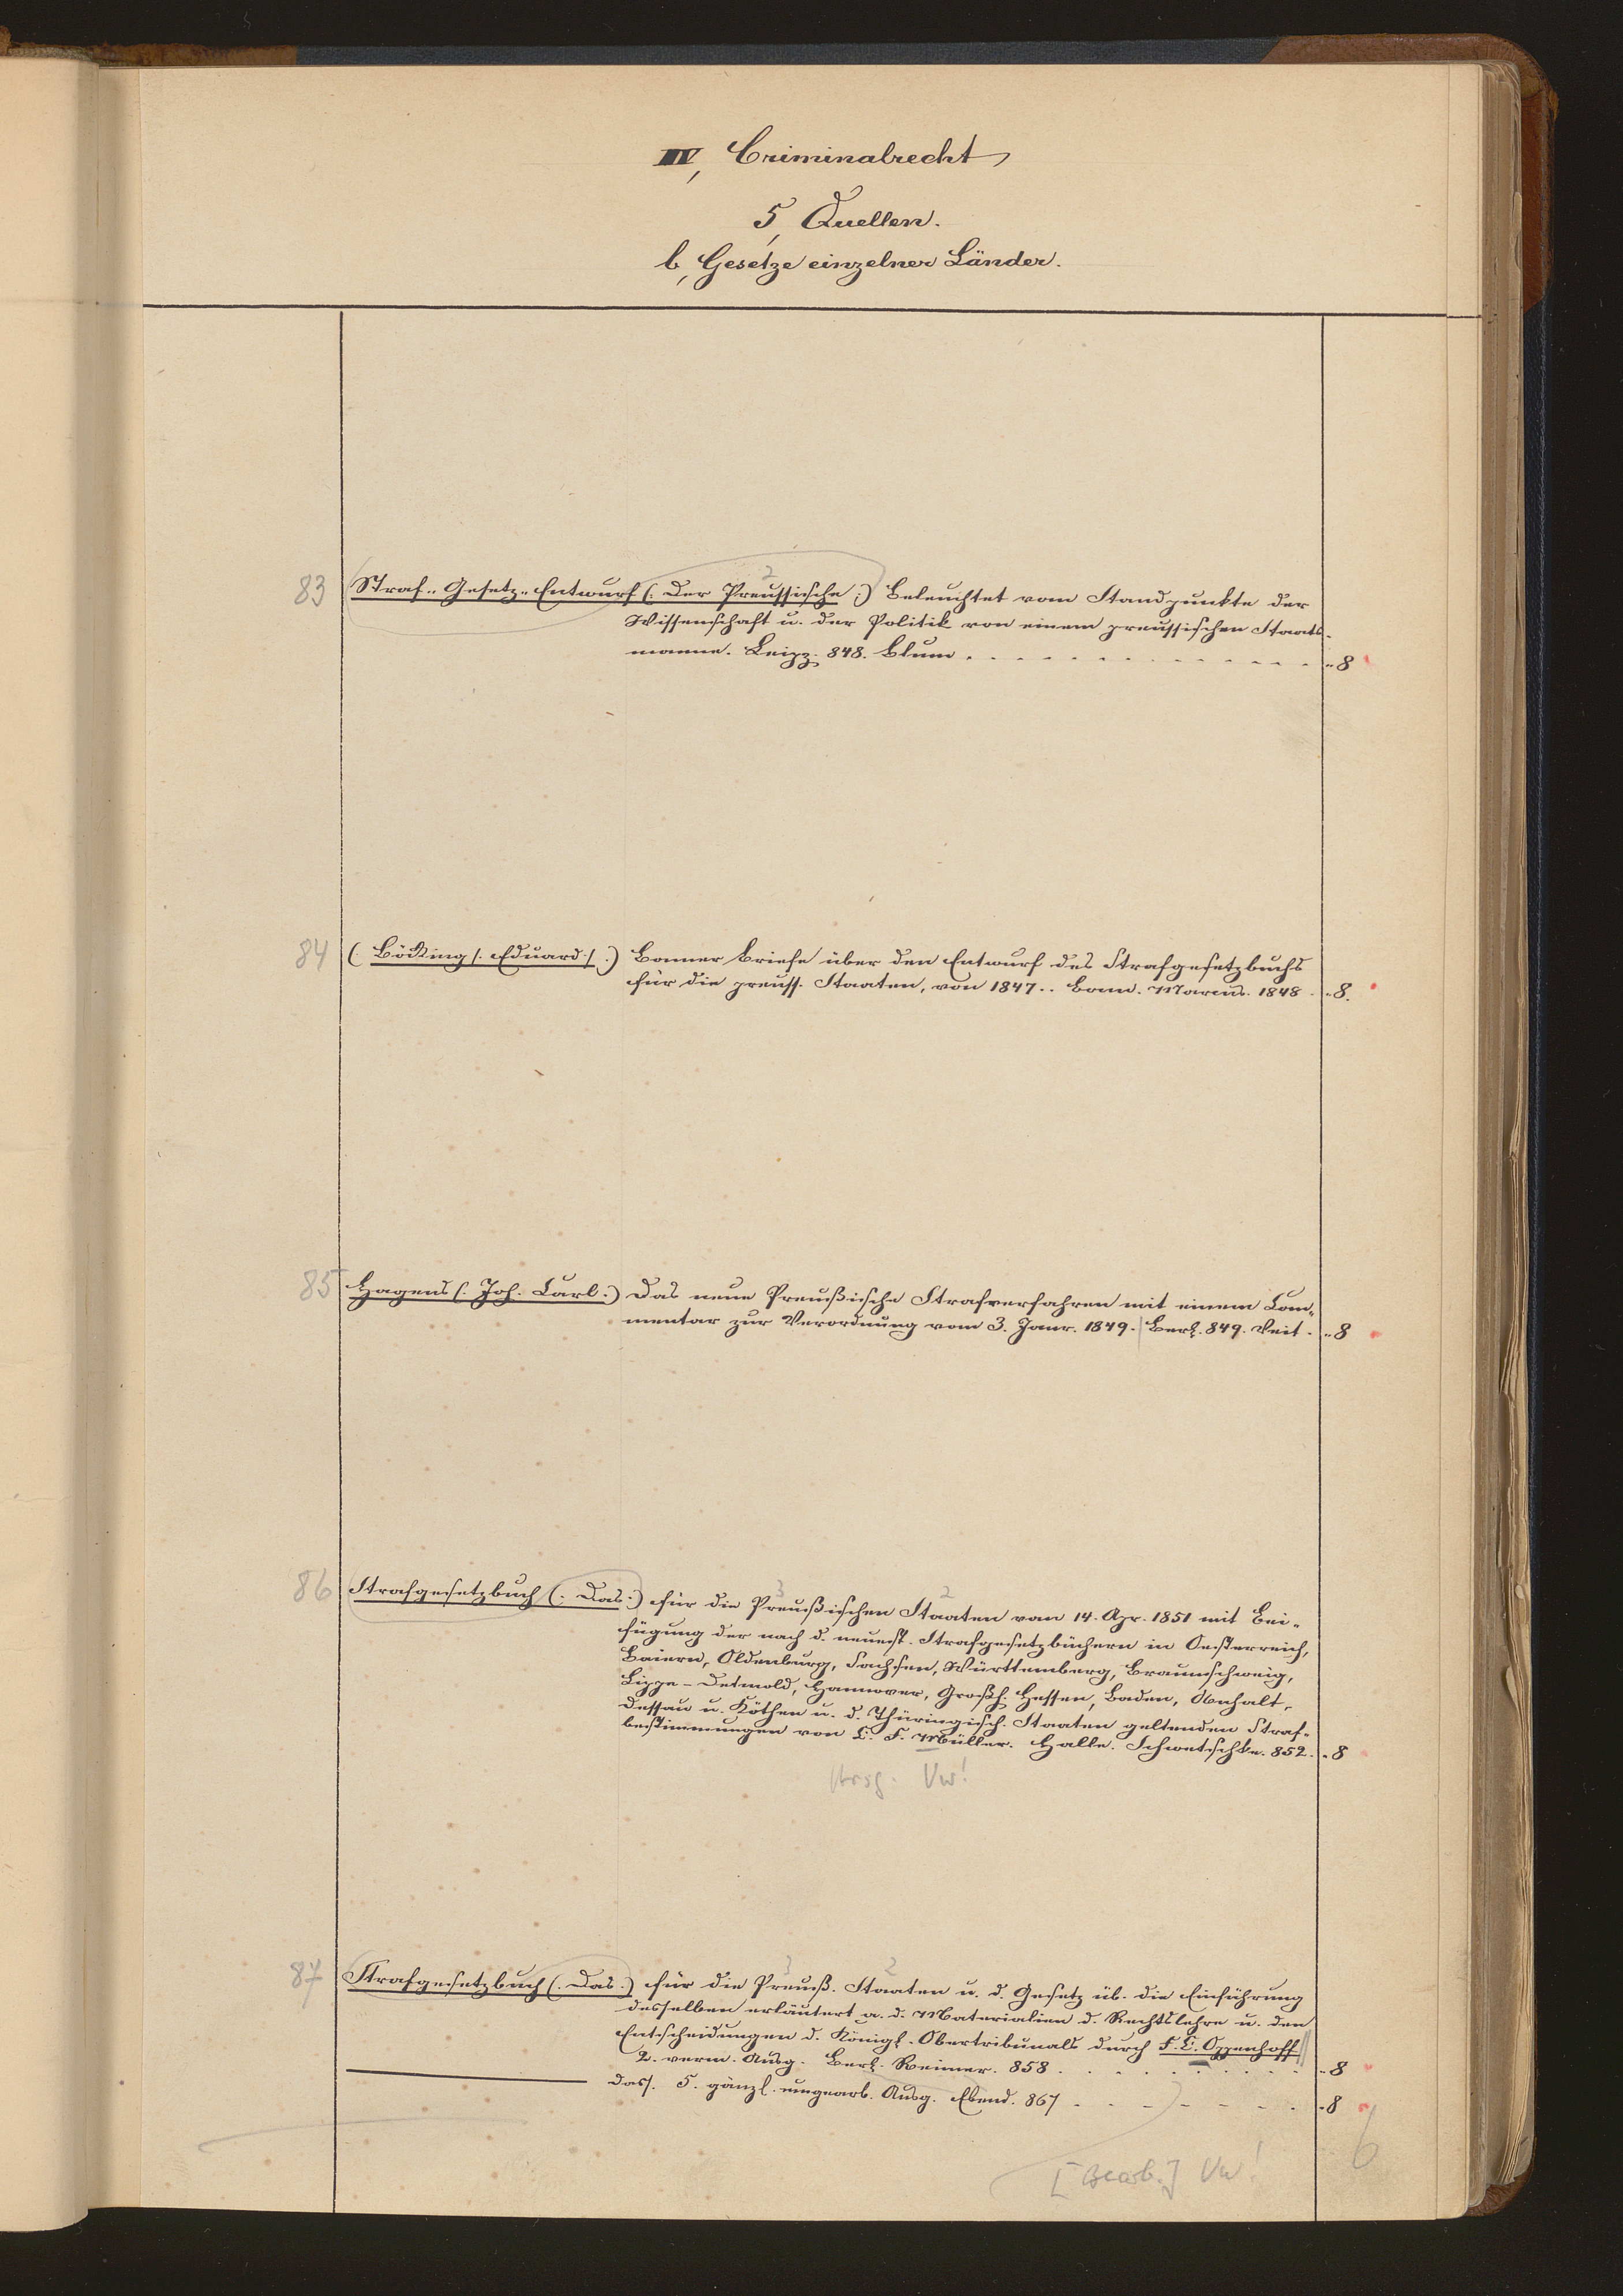 IV, Criminalrecht
5, Quellen.
b, Gesetze einzelner Länder.
83 Straf-Gesetz-Entwurf (: Der Preussische :) Beleuchtet vom Standpunkte der
2
Wissenschaft u. der Politik von einem preussischen Staats-
manne. Leipz. 848. Blum . . . . . . . . . . . . . . 8
84 (: Böcking /: Eduard :/ :) Bonner Briefe über den Entwurf des Strafgesetzbuchs
für die preuss. Staaten, von 1847.. Bonn. Marcus. 1848 . 8.
85 Hagens (: Joh. Carl :) Das neue Preußische Strafverfahren mit einem Com-
mentar zur Verordnung vom 3. Janr. 1849. Berl. 849. Veit . 8
86 Strafgesetzbuch (: Das :) für die Preußischen Staaten vom 14. Apr. 1851 mit Bei-
3 2
fügung der nach d. neuest. Strafgesetzbüchern in Oesterreich,
Baiern, Oldenburg, Sachsen, Württemberg, Braunschweig,
Lippe-Detmold, Hannover, Großh. Hessen, Baden, Anhalt-
Dessau u. Köthen u. d. Thüringisch. Staaten geltenden Straf-
bestimmungen von C. F. Müller. Halle. Schwetschke. 852. 8
Hrsg. Vw!
87 Strafgesetzbuch (: Das :) für die Preuß. Staaten u. d. Gesetz üb. die Einführung
3 2
desselben erläutert a. d. Materialien d. Rechtslehre u. den
Entscheidungen d. Königl. Obertribunals durch F. C. Oppenhoff
2. verm. Ausg. Berl. Reimer. 858 . . . . . . . . . . 8
Dass. 5. gänzl. umgearb. Ausg. Ebend. 867 . . . . . . . 8
6
[Bearb.] Vw!